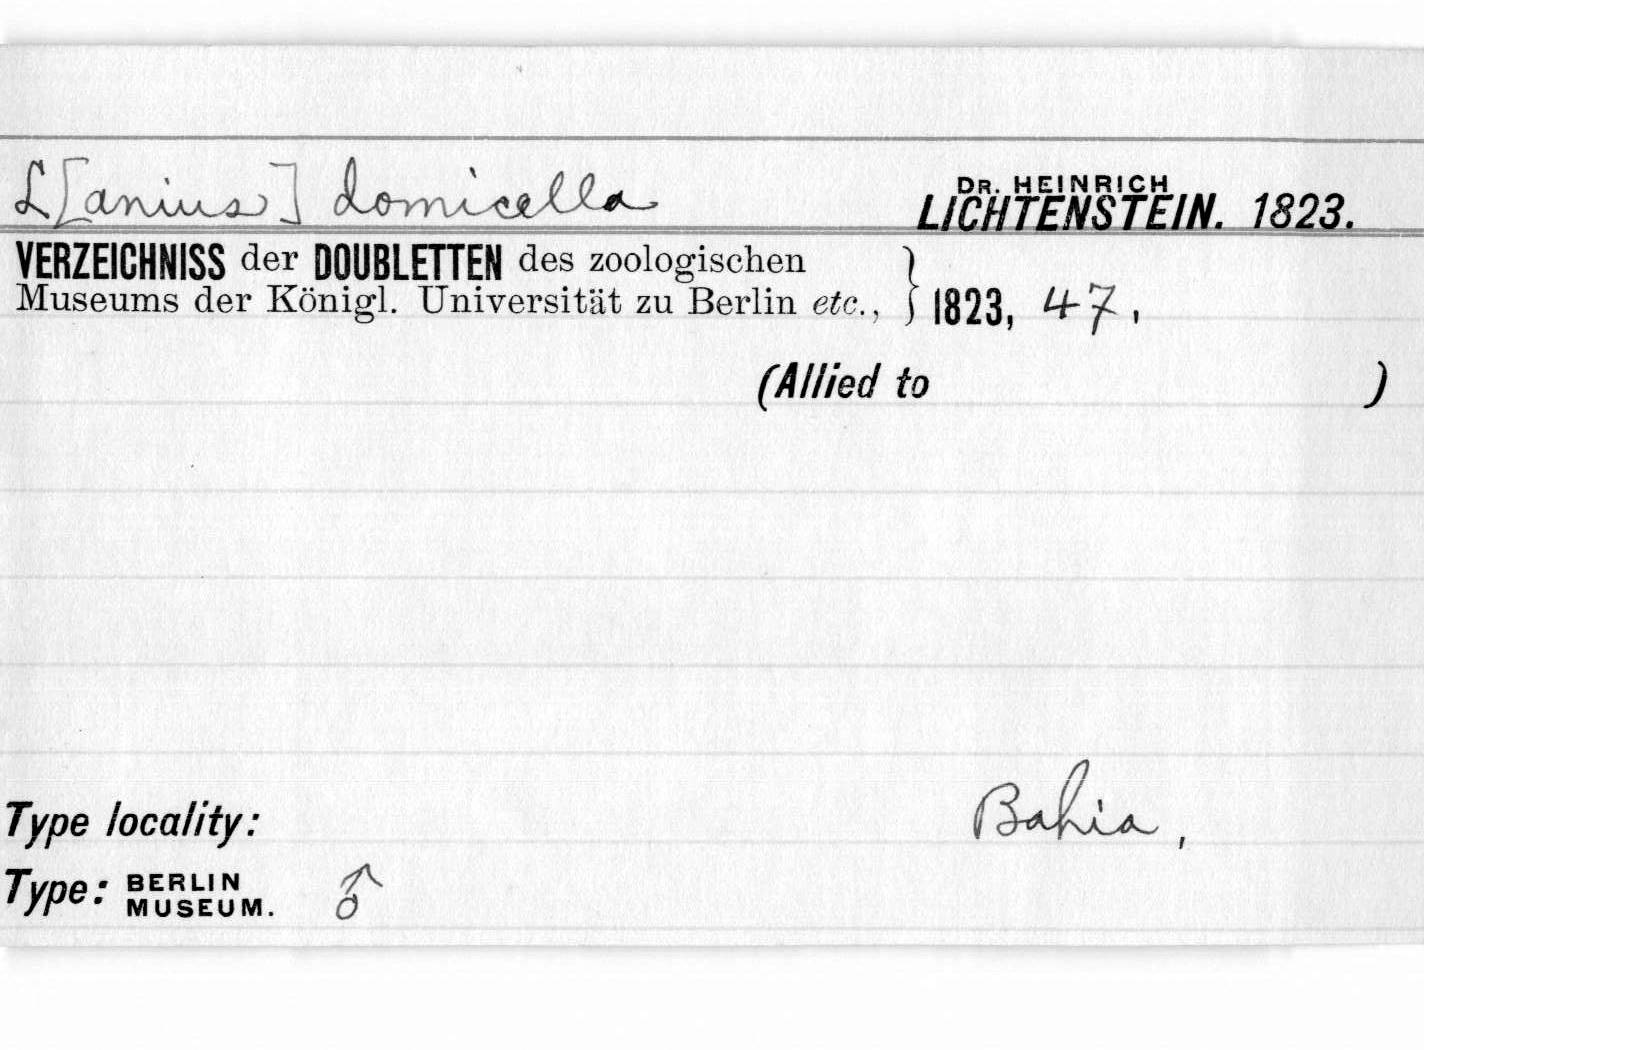 L[anius] domicella DR. HEINRICH LICHTENSTEIN. 1823.
VERZEICHNISS der DOUBLETTEN des zoologischen
Museums der Königl. Universität zu Berlin etc., } 1823, 47.
(Allied to )
Type locality: Bahia,
Type: BERLIN MUSEUM. ♂